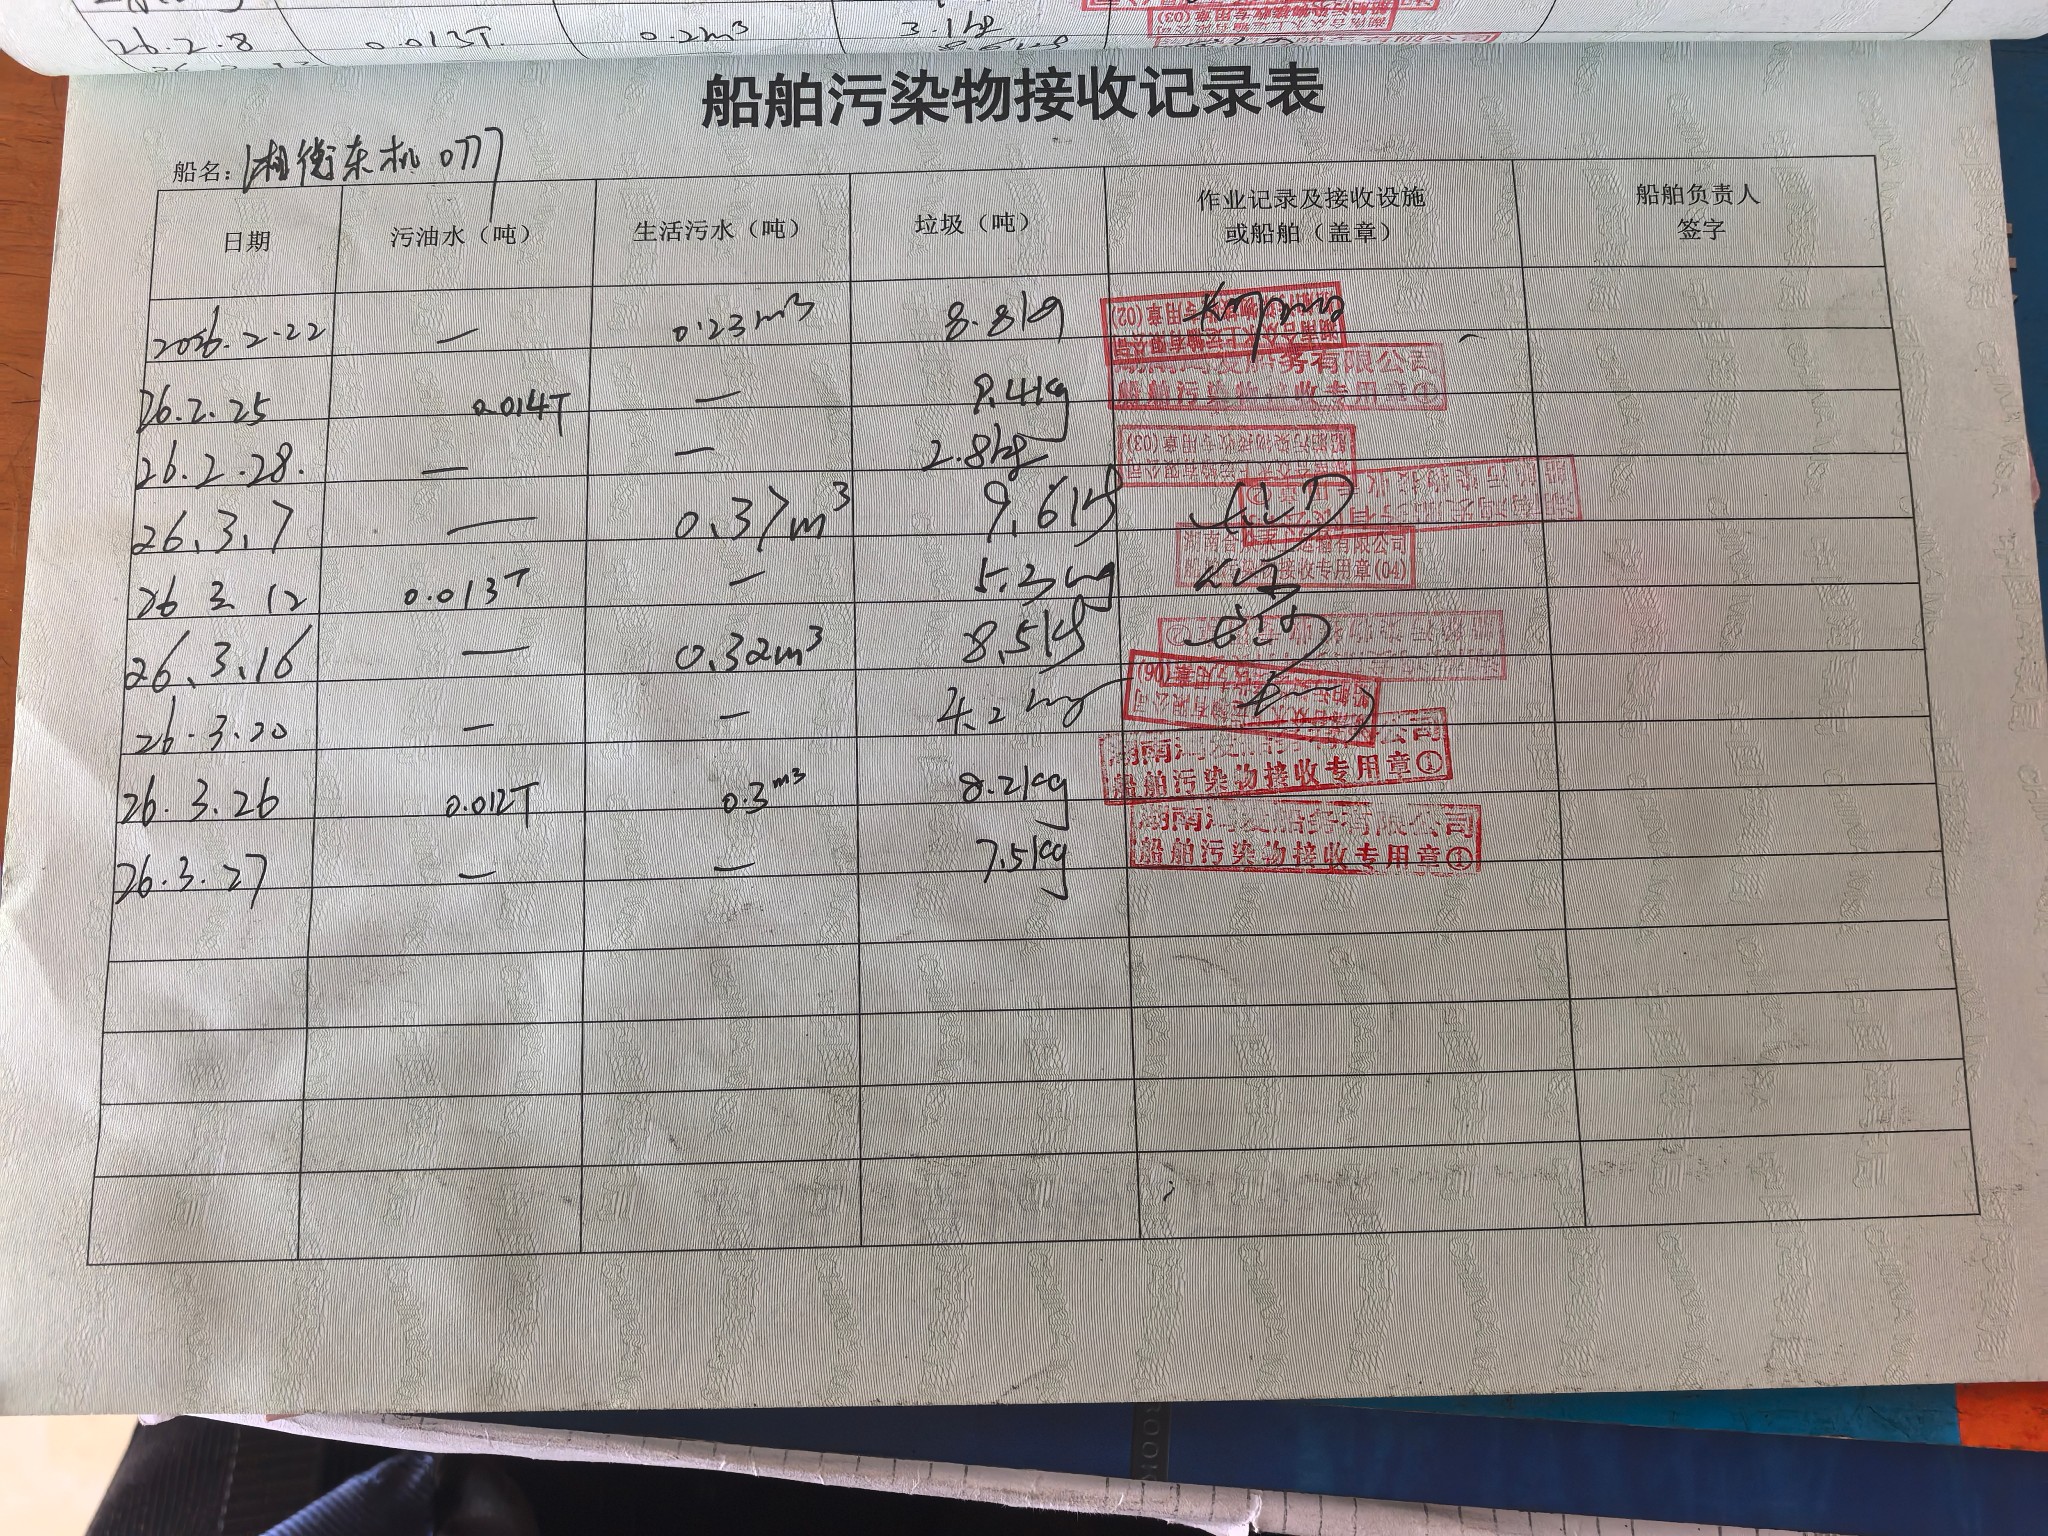 26.2.8 0.013T. 0.2m³ 3.1kg
船舶污染物接收记录表
船名：湘衡东机0777
日期 污油水（吨） 生活污水（吨） 垃圾（吨） 作业记录及接收设施 船舶负责人
或船舶（盖章） 签字
2026.2.22 — 0.23m³ 8.8kg
船舶污染物接收专用章(02)
26.2.25 0.014T — 9.4kg
船舶污染物接收专用章①
26.2.28. — — 2.8kg
船舶污染物接收专用章(03)
26.3.7 — 0.37m³ 9.6kg
26 3 12 0.013T — 5.3kg
接收专用章(04)
26.3.16 — 0.32m³ 8.5kg
26.3.20 — — 4.2kg
26.3.26 0.012T 0.3m³ 8.2kg
船舶污染物接收专用章①
26.3.27 — — 7.5kg
船舶污染物接收专用章①